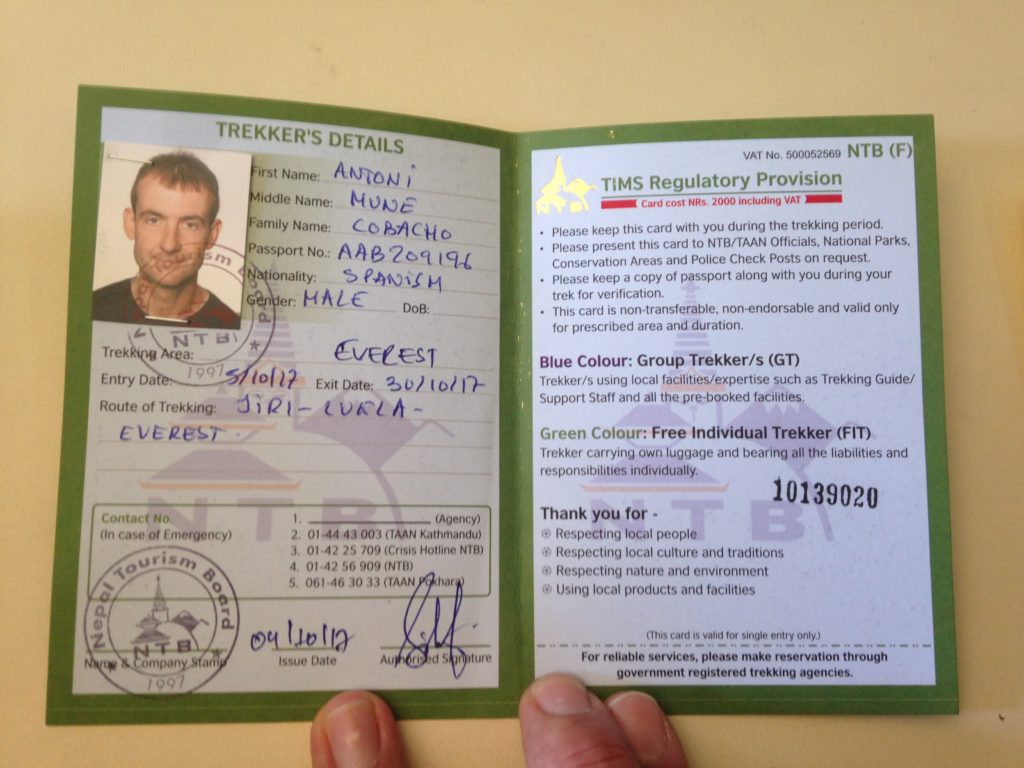 TREKKER'S DETAILS
First Name: ANTONI
Middle Name: MUNE
Family Name: COBACHO
Passport No.: AAB209196
Nationality: SPANISH
Gender: MALE DoB:
Trekking Area: EVEREST
Entry Date: 5/10/17 Exit Date: 30/10/17
Route of Trekking: JIRI - LUKLA -
EVEREST.
NTB
1997
NTB
Contact No.
(In case of Emergency)
1. (Agency)
2. 01-44 43 003 (TAAN Kathmandu)
3. 01-42 25 709 (Crisis Hotline NTB)
4. 01-42 56 909 (NTB)
5. 061-46 30 33 (TAAN Pokhara)
Nepal Tourism Board
NTB
1997
04/10/17
Name & Company Stamp Issue Date Authorised Signature
VAT No. 500052569 NTB (F)
TIMS Regulatory Provision
Card cost NRs. 2000 including VAT
• Please keep this card with you during the trekking period.
• Please present this card to NTB/TAAN Officials, National Parks,
Conservation Areas and Police Check Posts on request.
• Please keep a copy of passport along with you during your
trek for verification.
• This card is non-transferable, non-endorsable and valid only
for prescribed area and duration.
Blue Colour: Group Trekker/s (GT)
Trekker/s using local facilities/expertise such as Trekking Guide/
Support Staff and all the pre-booked facilities.
Green Colour: Free Individual Trekker (FIT)
Trekker carrying own luggage and bearing all the liabilities and
responsibilities individually.
10139020
NTB
Thank you for -
Respecting local people
Respecting local culture and traditions
Respecting nature and environment
Using local products and facilities
(This card is valid for single entry only.)
For reliable services, please make reservation through
government registered trekking agencies.